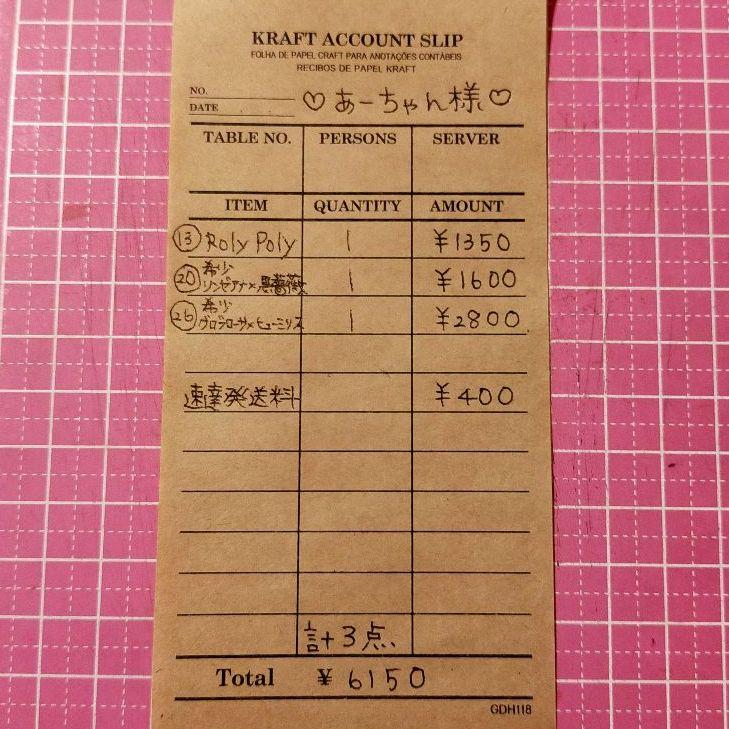 KRAFT ACCOUNT SLIP
FOLHA DE PAPEL CRAFT PARA ANOTAÇÕES CONTÁBEIS
RECIBOS DE PAPEL KRAFT
NO.
DATE
♡あーちゃん様♡
TABLE NO. PERSONS SERVER
ITEM QUANTITY AMOUNT
⑬ Roly Poly 1 ¥1350
希少
⑳ リンゼアナ×黒薔薇 1 ¥1600
希少
㉖ グロブローサ×ヒューミリス 1 ¥2800
速達発送料 ¥400
計3点、
Total ¥ 6150
GDH118